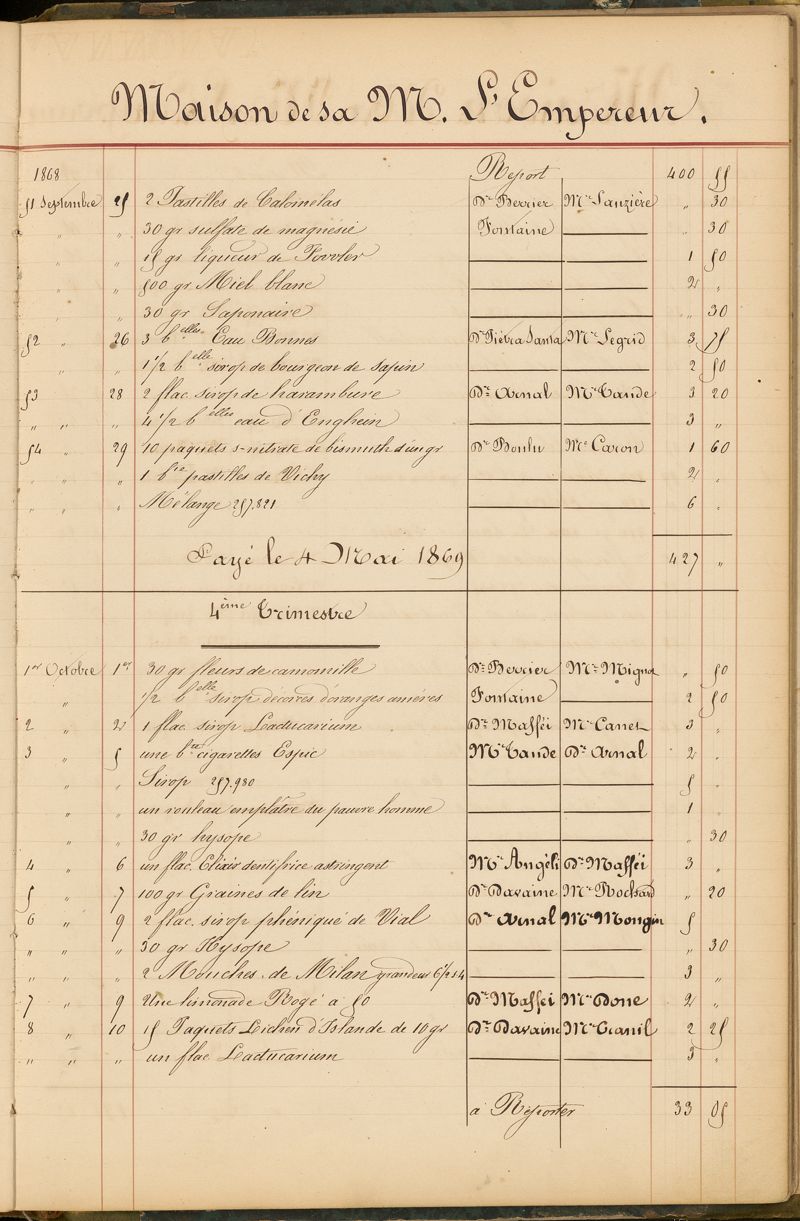 Maison de sa M. L'Empereur.
1868 Report 400 55
51 Septembre 25 2 Pastilles de Calomelas Dr Berrier Mr Lauzière " 30
" " 30 gr sulfate de magnésie Fontaine " 30
" " 15 gr liqueur de Fowler 1 50
" " 500 gr Miel blanc 2 "
" " 30 gr Saponaire " 30
52 " 26 3 belles Eau Bonnes Dr Piétra Santa Mr Legrid 3 75
" " 1 1/2 belle sirop de bourgeon de sapin 2 50
53 28 2 flac. sirop de harambure Dr Arnal Mr Tande 3 20
" " " 4 1/2 belles eau d'Enghein 3 "
54 " 29 10 paquets s-nitrate de bismuth d'un gr Dr Boulu Mr Caron 1 60
" " " 1 bte pastilles de Vichy 2 "
" " " Mélange 257.821 6 "
Payé le 4 Mai 1869 427 "
4ème Trimestre
1er Octobre 1er 30 gr fleurs de camomille Dr Berrier Mr Mignot " 50
" 1/2 belle sirop d'écorces d'oranges améres Fontaine 2 50
2 " 2 1 flac. sirop Lactucarium Dr Mafféi Mr Canet 3 "
3 " 5 une bte cigarettes Espic Mr Tande Dr Arnal 2 "
" " Sirop 257.980 5 "
" " un rouleau emplâtre du pauvre homme 1 "
" " 30 gr hysope " 30
4 " 6 un flac. Elixir dentifrice astringent Mr Angéli Dr Mafféi 3 "
5 " 7 100 gr Graines de lin Dr Davaine Mr Rochard " 20
6 " 9 2 flac. sirop phéniqué de Vial Dr Arnal Mr Mongin 5
" " " 30 gr Hysope " 30
" " " 2 Mouches de Milan grandeur 6 1/2 s 4 3 "
7 " 9 Une limonade Rogé a 50 Dr Mafféi Mr Done 2 "
8 " 10 15 Paquets Lichen d'Islande de 10 gr Dr Davaine Mr 2 25
" " " un flac Lactucarium 3 "
a Reporter 33 05